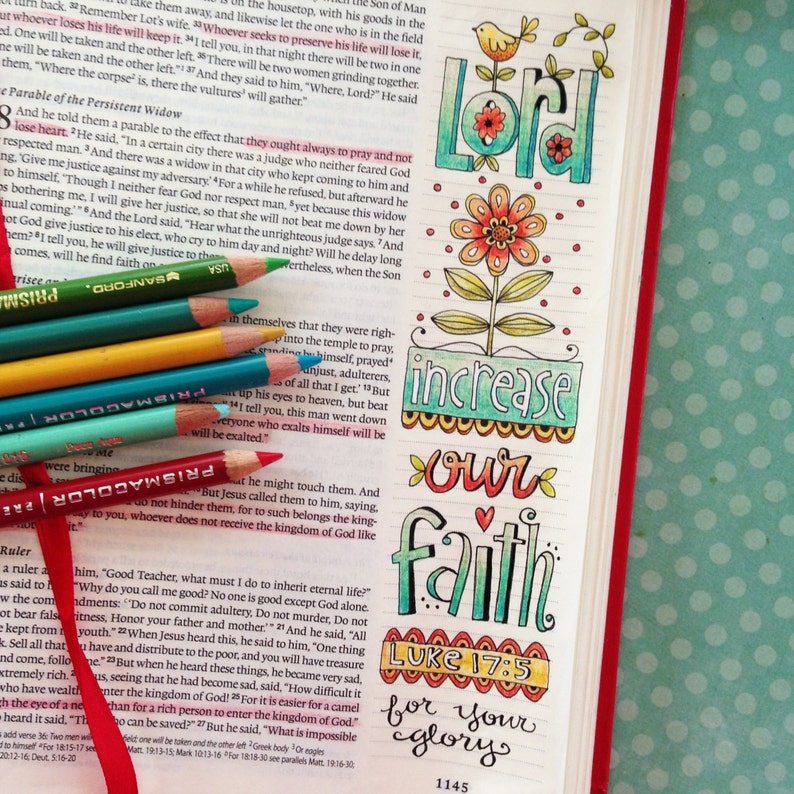 not turn back. 32 Remember Lot's wife. 33 Whoever seeks to preserve his life will lose it,
but whoever loses his life will keep it. 34 I tell you, in that night there will be two in one
bed. One will be taken and the other left. 35 There will be two women grinding together.
them, "Where the corpse2 is, there the vultures3 will gather."
The Parable of the Persistent Widow
And he told them a parable to the effect that they ought always to pray and not
lose heart. 2 He said, "In a certain city there was a judge who neither feared God
respected man. 3 And there was a widow in that city who kept coming to him and
saying, 'Give me justice against my adversary.' 4 For a while he refused, but afterward he
'Though I neither fear God nor respect man, 5 yet because this widow
bothering me, I will give her justice, so that she will not beat me down by her
continual coming.'" 6 And the Lord said, "Hear what the unrighteous judge says. 7 And
not God give justice to his elect, who cry to him day and night? Will he delay long
I tell you, he will give justice to
comes, will he find faith on
in themselves that they were righ-
into the temple to pray,
standing by himself, prayed4
unjust, adulterers,
of all that I get.' 13 But
up his eyes to heaven, but beat
14 I tell you, this man went down
everyone who exalts himself will be
will be exalted."
to Me
were bringing
he might touch them. And
But Jesus called them to him, saying,
do not hinder them, for to such belongs the king-
to you, whoever does not receive the kingdom of God like
Ruler
a ruler him, "Good Teacher, what must I do to inherit eternal life?"
said to "Why do you call me good? No one is good except God alone.
the commandments: 'Do not commit adultery, Do not murder, Do not
bear false witness, Honor your father and mother.'" 21 And he said, "All
kept from youth." 22 When Jesus heard this, he said to him, "One thing
Sell all that you have and distribute to the poor, and you will have treasure
and come, follow me." 23 But when he heard these things, he became very sad,
extremely rich. seeing that he had become sad, said, "How difficult it
who have wealth enter the kingdom of God! 25 For it is easier for a camel
the eye of a needle than for a rich person to enter the kingdom of God."
heard it said, "Then who can be saved?" 27 But he said, "What is impossible
add verse 36: Two men will field; one will be taken and the other left 2 Greek body 3 Or eagles
to himself 4 For 18:15-17 see Matt. 19:13-15; Mark 10:13-16 For 18:18-30 see parallels Matt. 19:16-30;
Deut. 5:16-20
1145
PRISMA SANFORD. USA
PRISMACOLOR
PRISMACOLOR PRE
Lord
increase
our
faith
LUKE 17:5
for your
glory